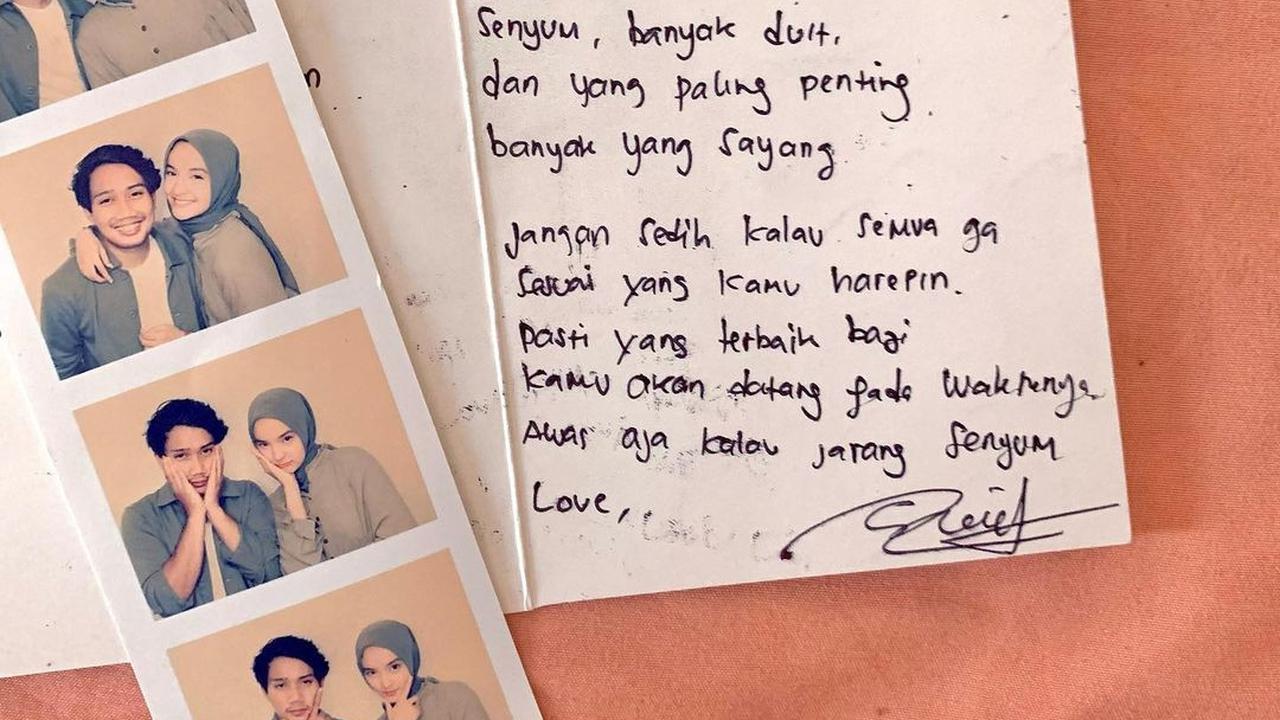 Senyum, banyak duit,
n
dan yang paling penting
banyak yang sayang
Jangan sedih kalau semua ga
sesuai yang kamu harepin.
pasti yang terbaik bagi
kamu akan datang pada waktunya
Awas aja kalau jarang senyum
Love,